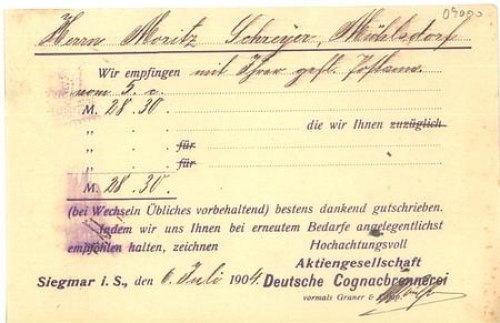 09090
Herrn Moritz Schreyer, Mühlsdorf
Wir empfingen mit Ihrer gefl. Postanw.
vom 5. c.
M. 28.30
„ . die wir Ihnen zuzüglich
„ . für
„ . für
M. 28.30.
(bei Wechseln Übliches vorbehaltend) bestens dankend gutschrieben.
Indem wir uns Ihnen bei erneutem Bedarfe angelegentlichst
empfohlen halten, zeichnen Hochachtungsvoll
Aktiengesellschaft
Siegmar i. S., den 6. Juli 1904. Deutsche Cognacbrennerei
vormals Gruner &